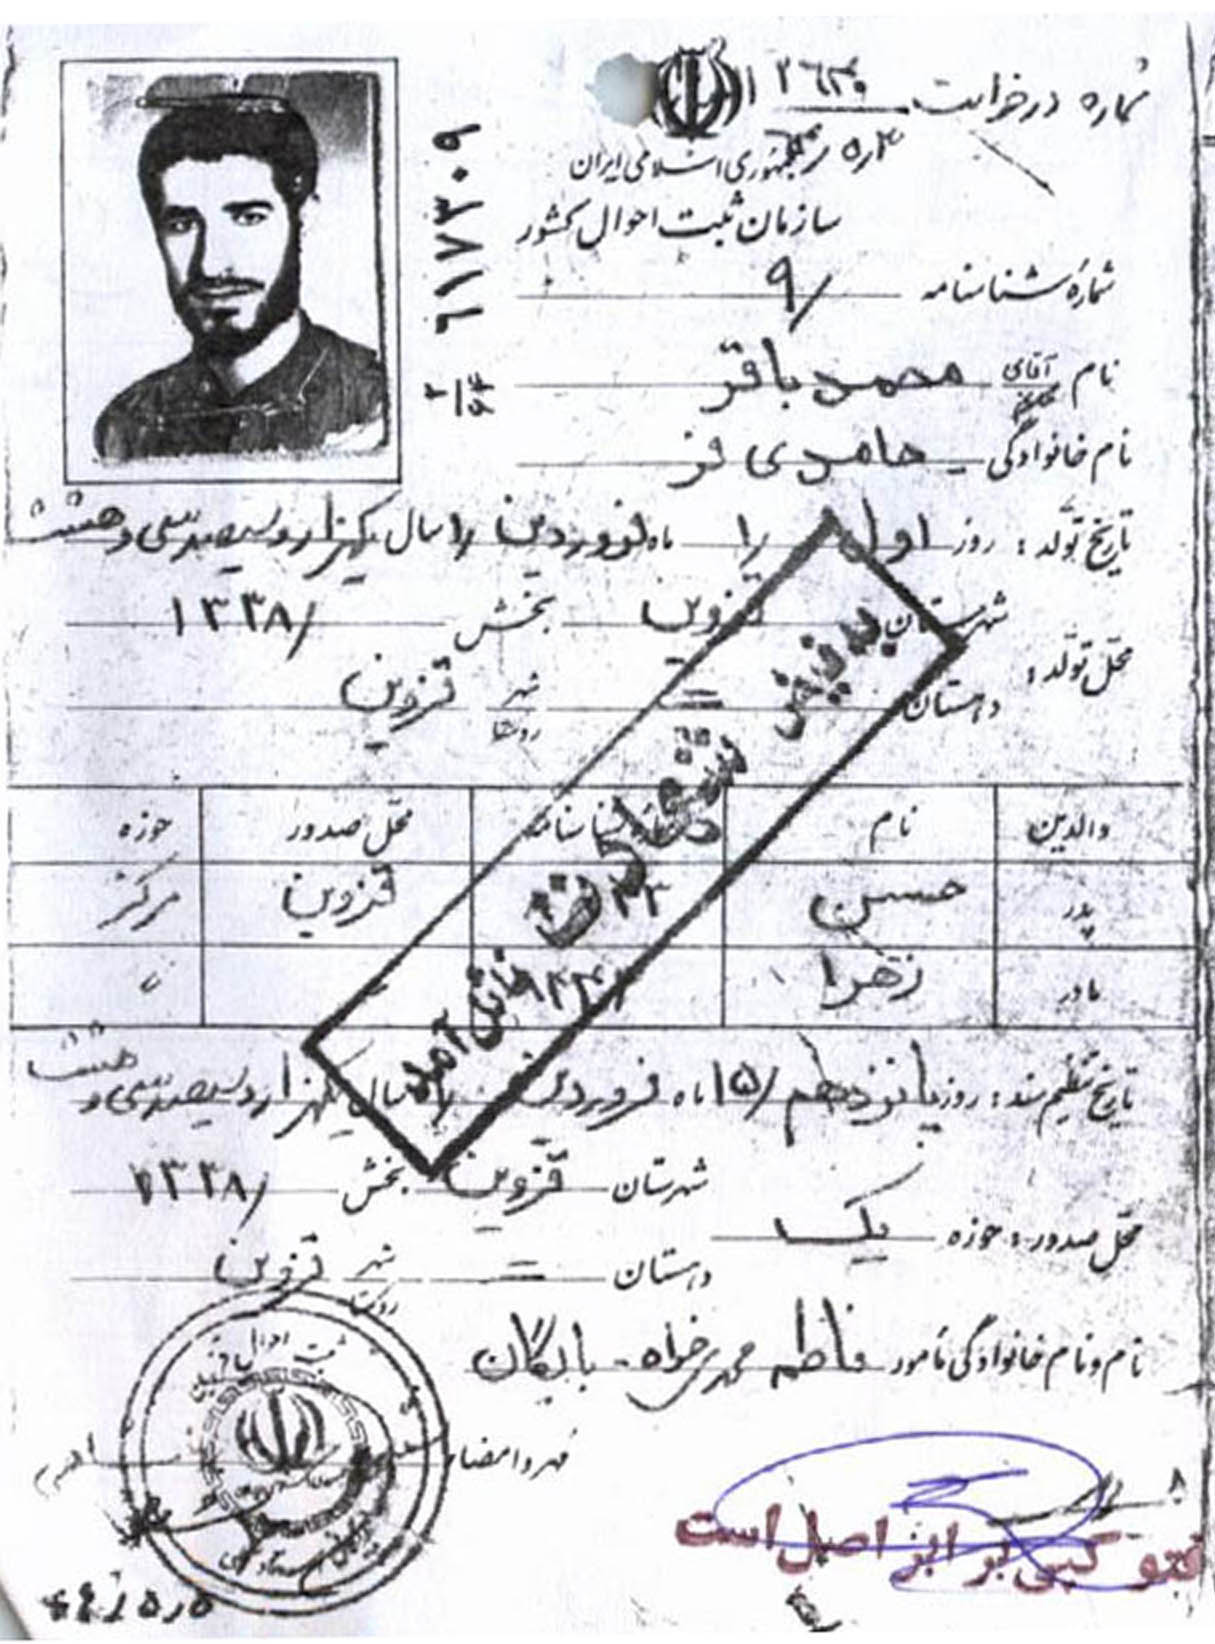 شماره درخواست
جمهوری اسلامی ایران
سازمان ثبت احوال کشور
۶۱۷۳۰۹
شمارۀ شناسنامه ۹/
نام آقای محمد باقر
نام خانوادگی حامدی فر
تاریخ تولد: روز اول را ماه فروردین را سال یکهزار و سیصد و سی و هشت
محل تولد: شهرستان قزوین بخش ۱۳۳۸/
دهستان = شهر قزوین
والدین نام شماره شناسنامه محل صدور حوزه
پدر حسن قزوین مرکز
مادر زهرا
به فیض شهادت نائل آمد
تاریخ تنظیم سند: روز پانزدهم /۱۵ ماه فروردین سال یکهزار و سیصد و سی و هشت
محل صدور: حوزه یک شهرستان قزوین بخش ۱۳۳۸/
دهستان = شهر قزوین
نام و نام خانوادگی مامور فاطمه
مهر و امضاء
فتو کپی برابر اصل است